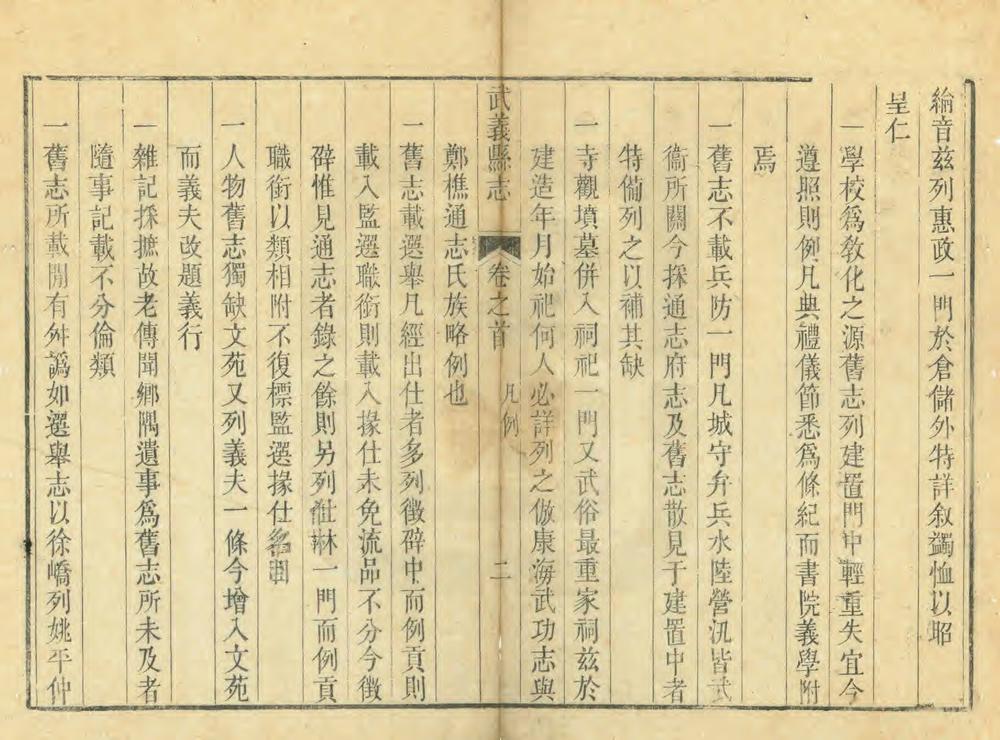 綸音茲列惠政一門於倉儲外特詳叙蠲恤以昭
皇仁
一學校爲敎化之源舊志列建置門中輕重失宜今
遵照則例凡典禮儀節悉爲條紀而書院義學附
焉
一舊志不載兵防一門凡城守弁兵水陸營汛皆武
衞所關今採通志府志及舊志散見于建置中者
特備列之以補其缺
一寺觀墳墓併入祠祀一門又武俗最重家祠茲於
建造年月始祀何人必詳列之倣康海武功志與
武義縣志 卷之首 凡例 二
鄭樵通志氏族略例也
一舊志載選舉凡經出仕者多列徵辟中而例貢則
載入監選職銜則載入掾仕未免流品不分今徵
辟惟見通志者錄之餘則另列 一門而例貢
職銜以類相附不復標監選掾仕名目
一人物舊志獨缺文苑又列義夫一條今增入文苑
而義夫改題義行
一雜記採摭故老傳聞鄉隅遺事爲舊志所未及者
隨事記載不分倫類
一舊志所載間有舛譌如選舉志以徐嶠列姚平仲